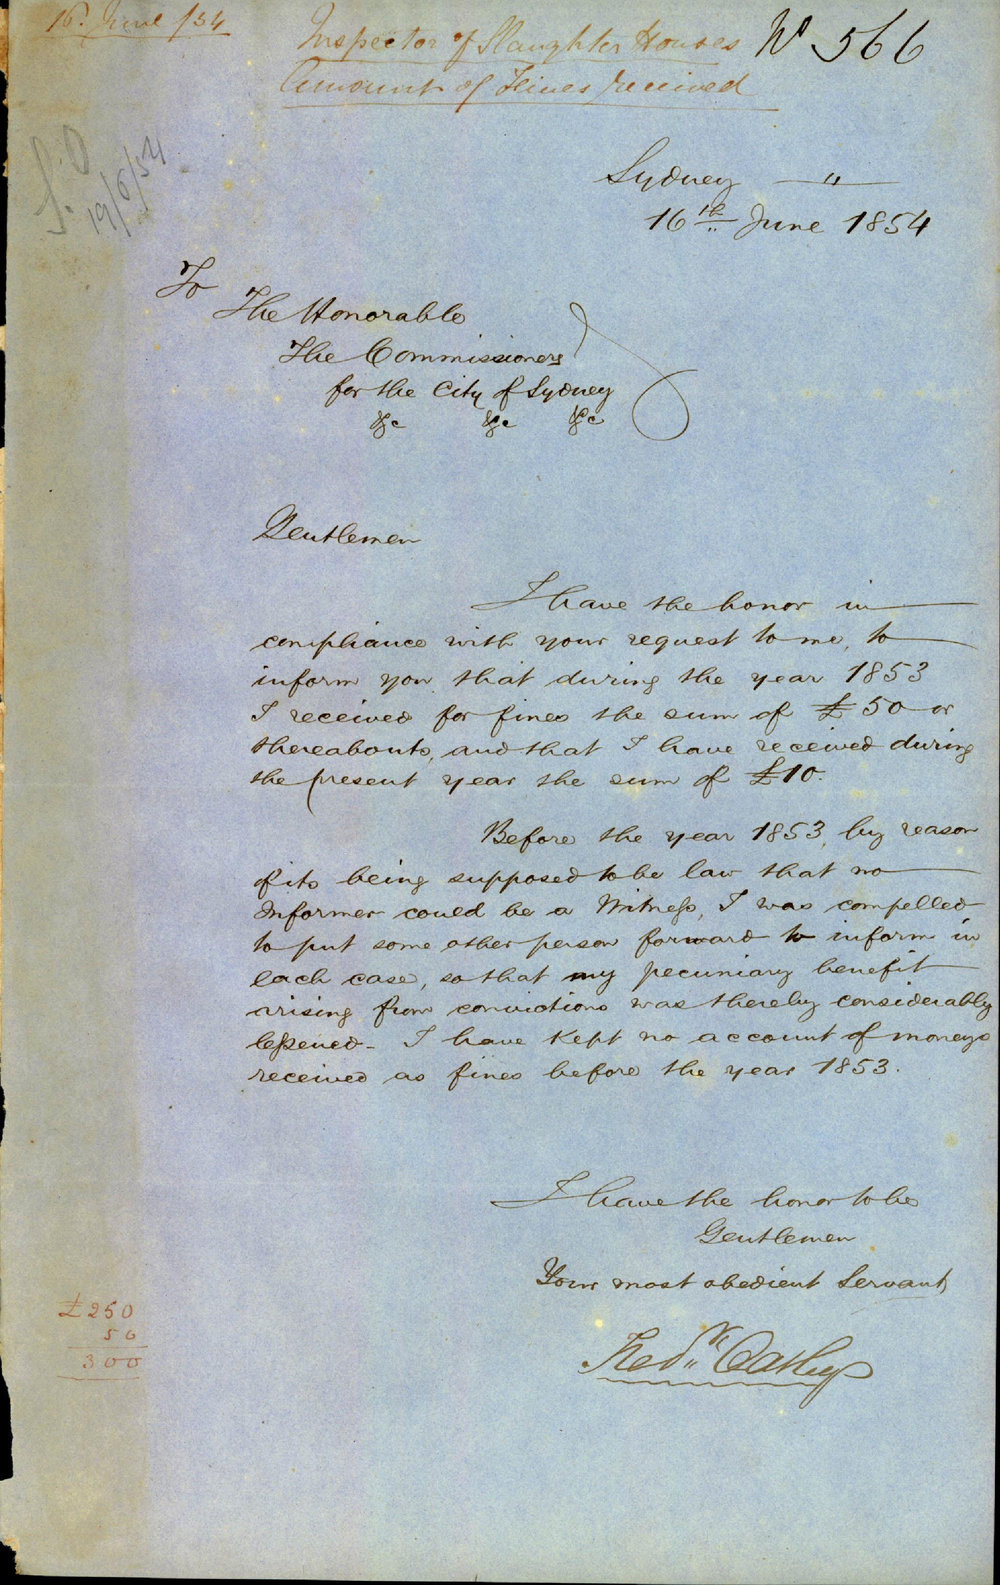 16. June /54
Inspector of Slaughter Houses
Amount of Fines received
No 566
19/6/54
Sydney — " —
16th June 1854
To
The Honorable
The Commissioners
for the City of Sydney
&c &c &c
Gentlemen
I have the honor in
compliance with your request to me, to
inform you that during the year 1853
I received for fines the sum of £50 or
thereabouts, and that I have received during
the present year the sum of £10.
Before the year 1853, by reason
of its being supposed to be law that no
Informer could be a Witness, I was compelled
to put some other person forward to inform in
each case, so that my pecuniary benefit
arising from convictions was thereby considerably
lessened - I have kept no account of moneys
received as fines before the year 1853.
I have the honor to be
Gentlemen
Your most obedient Servant
Fredk Oatley
£250
50
300